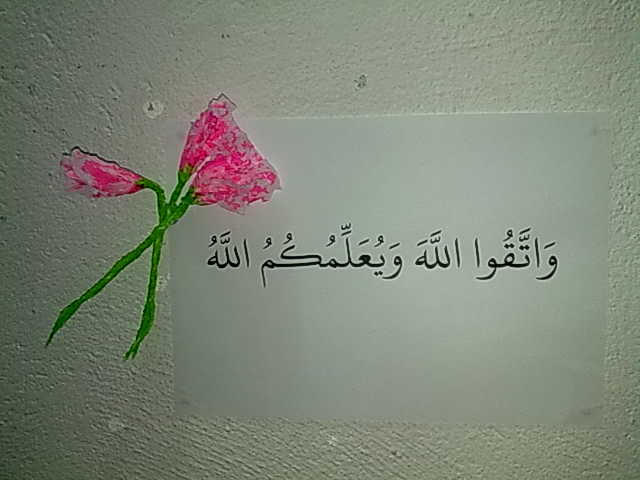 وَاتَّقُوا اللَّهَ وَيُعَلِّمُكُمُ اللَّهُ